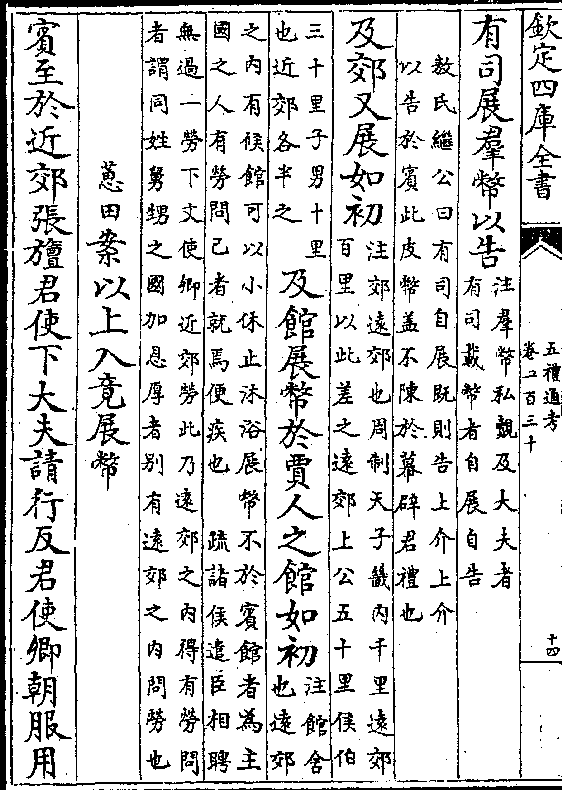 欽定四庫全書
五禮通考
卷二百三十
十四
有司展羣幣以告注羣幣私覿及大夫者
有司載幣者自展自告
敖氏繼公曰有司自展既則告上介上介
以告於賓此皮幣蓋不陳於幕辟君禮也
及郊又展如初注郊遠郊也周制天子畿內千里遠郊
百里以此差之遠郊上公五十里侯伯
三十里子男十里
也近郊各半之
及館展幣於賈人之館如初注館舍
也遠郊
之內有候館可以小休止沐浴展幣不於賓館者為主
國之人有勞問己者就焉便疾也 疏諸侯遣臣相聘
無過一勞下文使卿近郊勞此乃遠郊之內得有勞問
者謂同姓舅甥之國加恩厚者別有遠郊之內問勞也
蕙田案以上入竟展幣
賓至於近郊張旜君使下大夫請行反君使卿朝服用